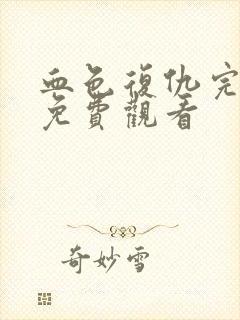 血色復仇完
免費觀看
奇妙雪